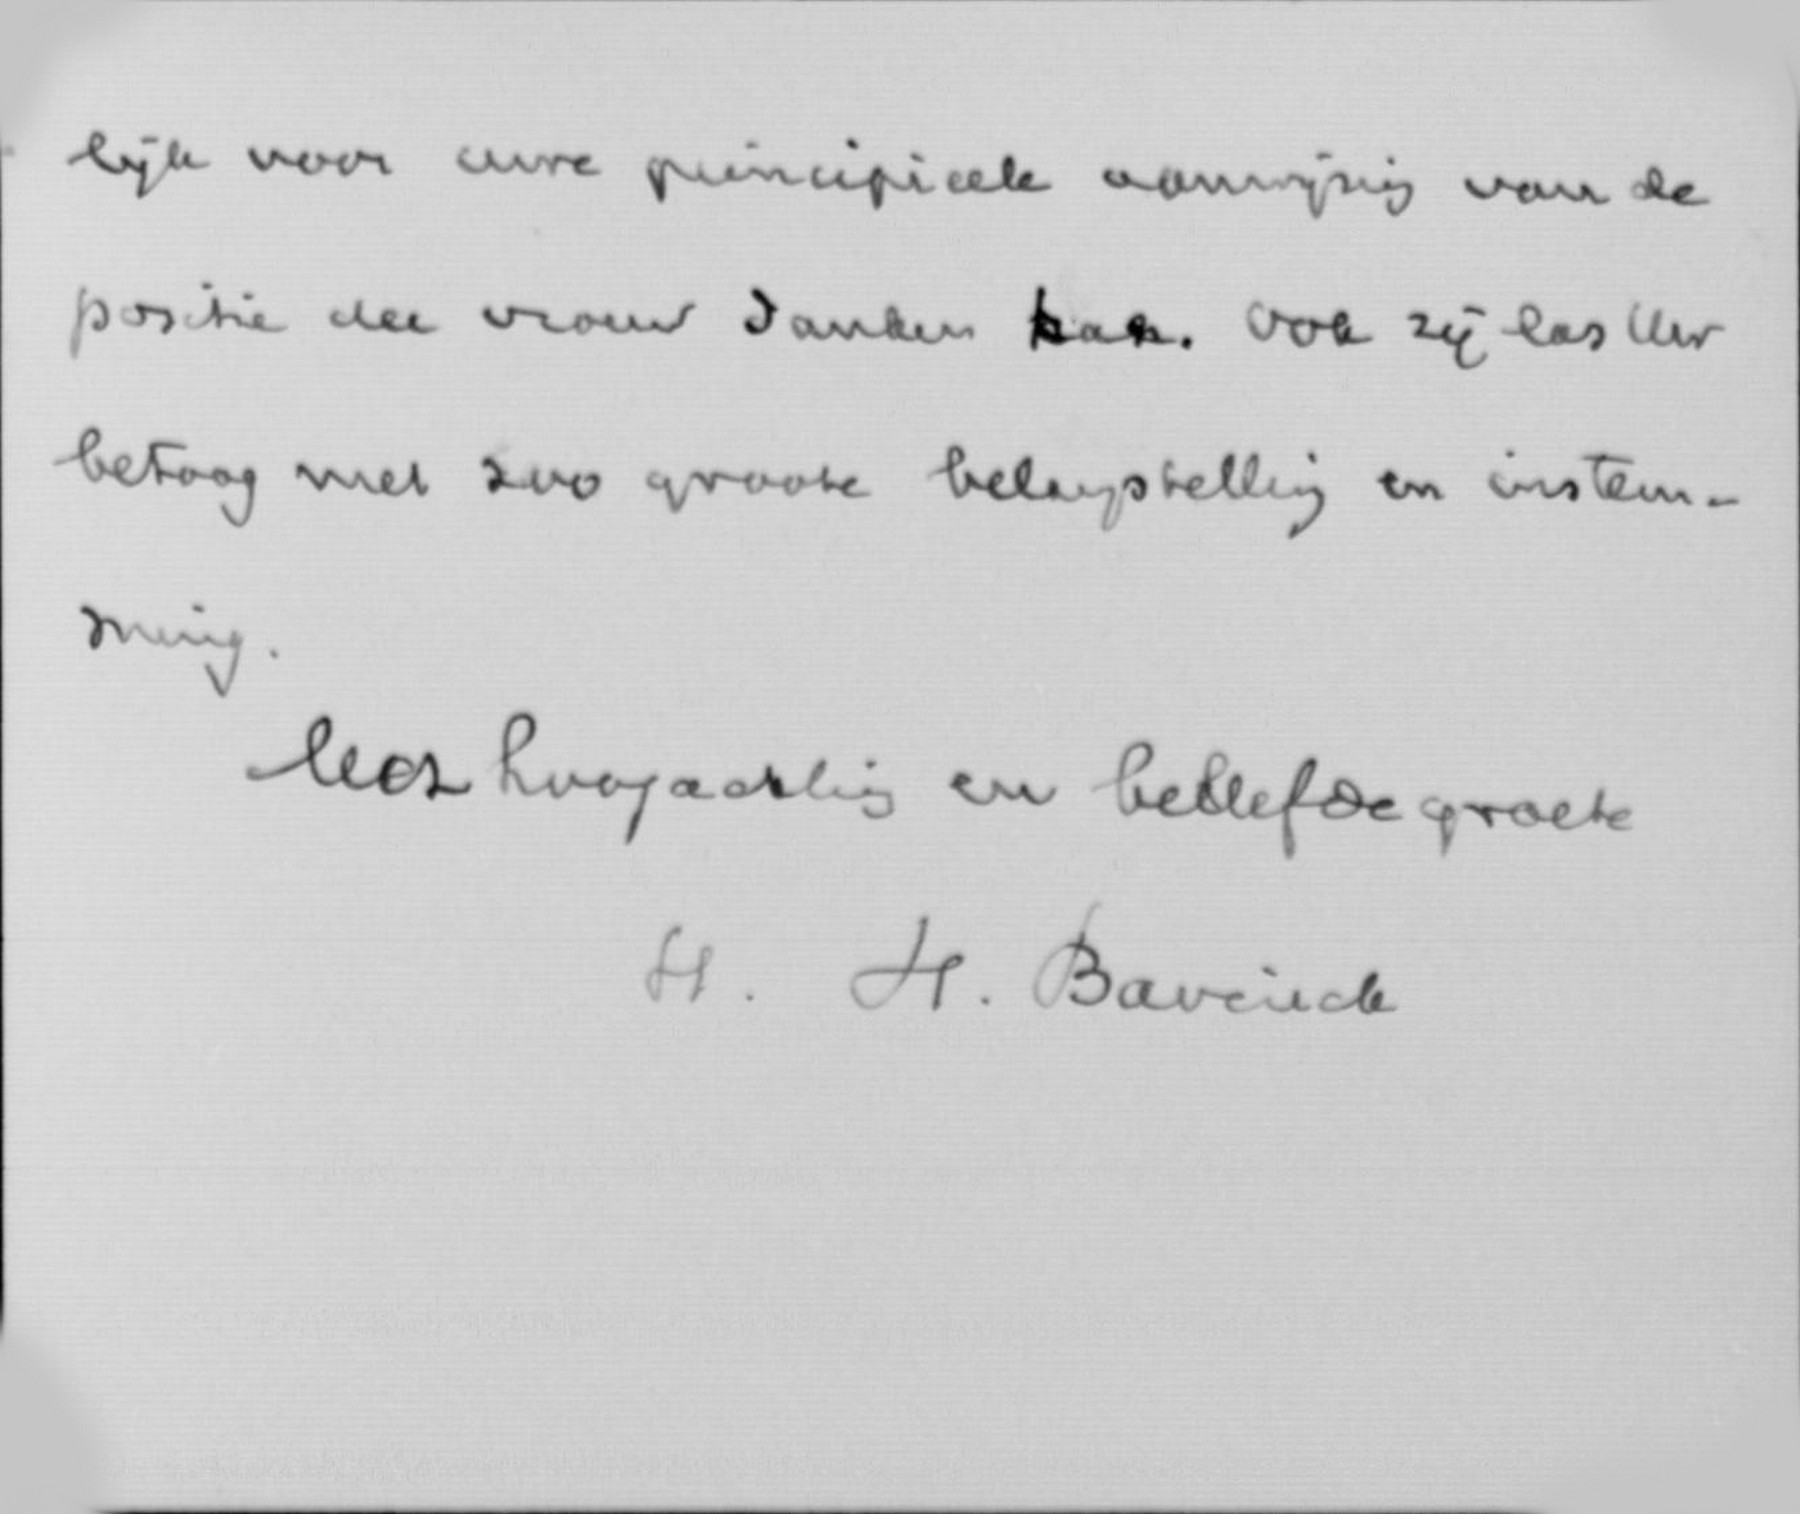 lijk voor uwe principieele aanwijzing van de
positie der vrouw danken kan. Ook zij las Uw
betoog met zoo groote belangstelling en instem-
ming.
Met hoogachting en beleefde groete
H. H. Bavinck